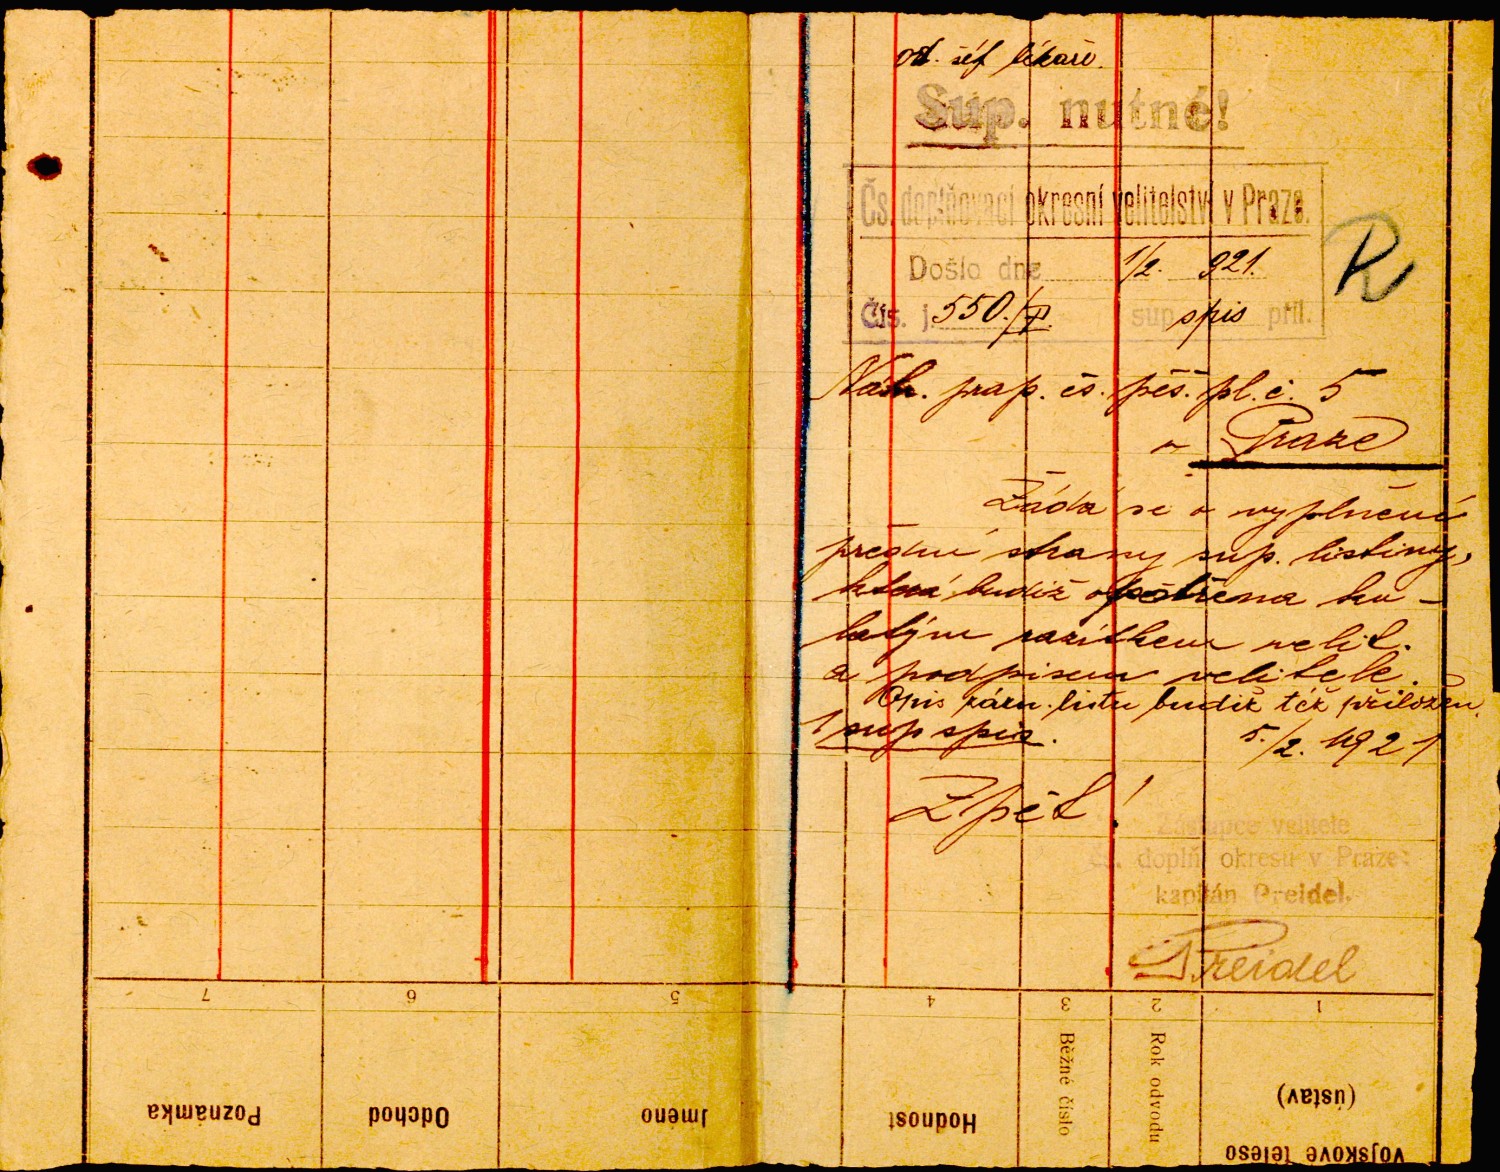 od. šéf lékaře.
Sup. nutné!
Čs. doplňovací okresní velitelství v Praze.
Došlo dne 1/2. 921.
Čís. j. 550./ sup. spis příl.
R
Náh. prap. čs. pěš. pl. č. 5
v Praze
Žádá se o vyplnění
přední strany sup. listiny,
která budiž opatřena ku-
latým razítkem velit.
a podpisem velitele.
Opis zázn. listu budiž též přiložen.
1 sup spis. 5./2. 1921
Zpět!
Zástupce velitele
čs. doplň. okresu v Praze:
kapitán Preidel.
Preidel
7 6 5 4 3 2 1
Poznámka
Odchod
Jméno
Hodnost
Běžné číslo
Rok odvodu
Vojskové těleso
(ústav)